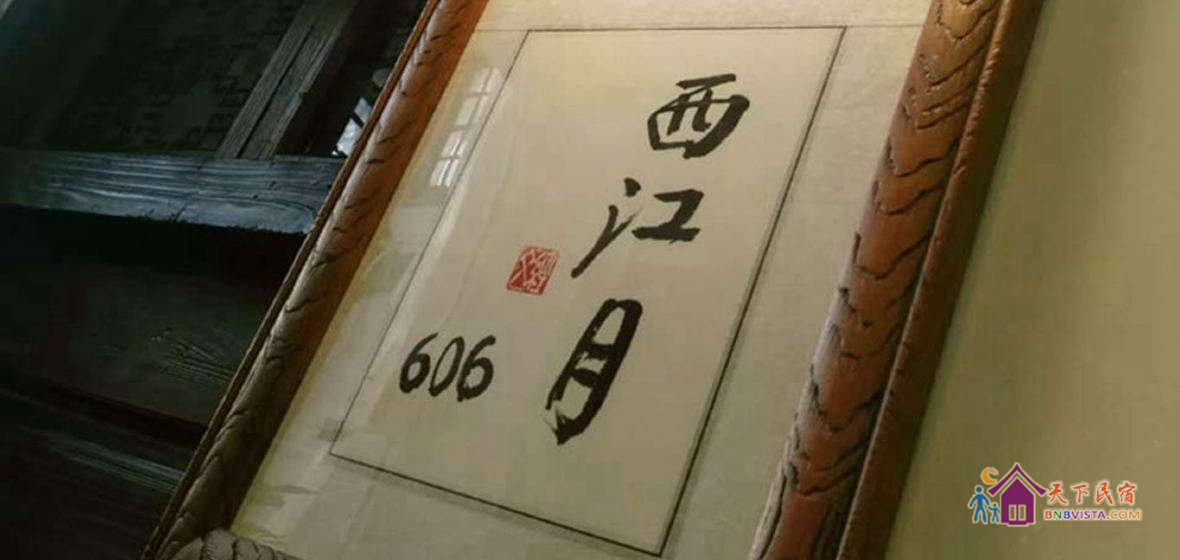 西江月
606
天下民宿
BNBVISTA.COM